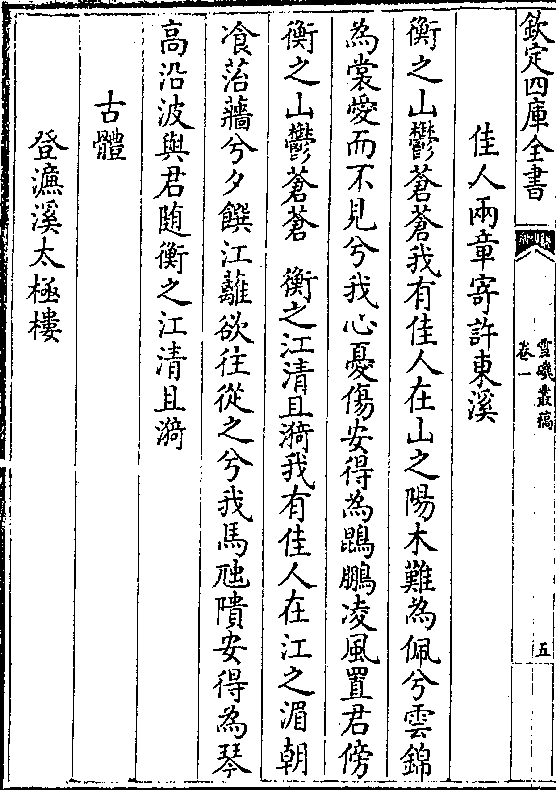 欽定四庫全書
雪磯叢稿
卷一
五
佳人兩章寄許東溪
衡之山鬱蒼蒼我有佳人在山之陽木難為佩兮雲錦
為裳愛而不見兮我心憂傷安得為鵾鵬凌風置君傍
衡之山鬱蒼蒼　衡之江清且漪我有佳人在江之湄朝
飡菭蘠兮夕饌江蘺欲往從之兮我馬虺隤安得為琴
高沿波與君随衡之江清且漪
古體
登濂溪太極樓